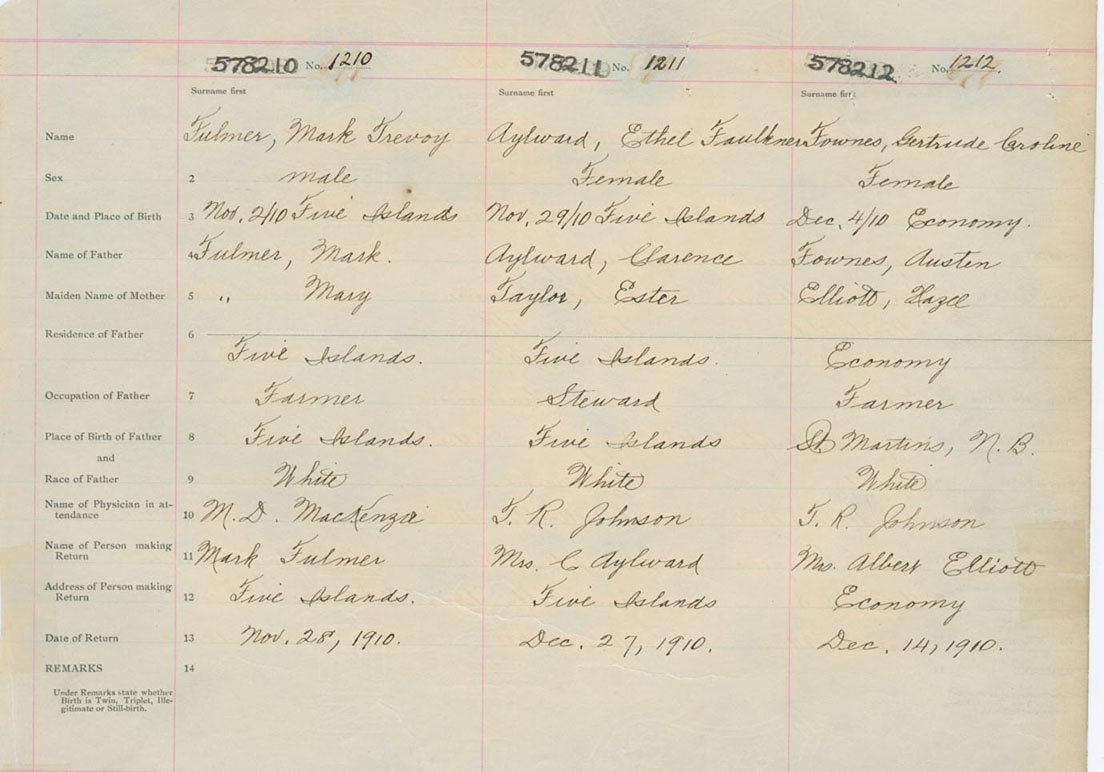 578210 No. 1210 578211 No. 1211 578212 No. 1212.
Surname first Surname first Surname first
Name Fulmer, Mark Trevoy Aylward, Ethel Faulkner Fownes, Gertrude Caroline
Sex 2 male Female Female
Date and Place of Birth 3 Nov. 2/10 Five Islands Nov. 29/10 Five Islands Dec. 4/10 Economy.
Name of Father 4 Fulmer, Mark. Aylward, Clarence Fownes, Austen
Maiden Name of Mother 5 " Mary Taylor, Ester Elliott, Hazel
Residence of Father 6
Five Islands. Five Islands. Economy
Occupation of Father 7 Farmer Steward Farmer
Place of Birth of Father 8 Five Islands. Five Islands St Martins, N. B.
and
Race of Father 9 White White White
Name of Physician in at-
tendance 10 M. D. MacKenzie T. R. Johnson T. R. Johnson
Name of Person making
Return 11 Mark Fulmer Mrs. C Aylward Mrs. Albert Elliott
Address of Person making
Return 12 Five Islands. Five Islands Economy
Date of Return 13 Nov. 28, 1910. Dec. 27, 1910. Dec. 14, 1910.
REMARKS 14
Under Remarks state whether
Birth is Twin, Triplet, Ille-
gitimate or Still-birth.